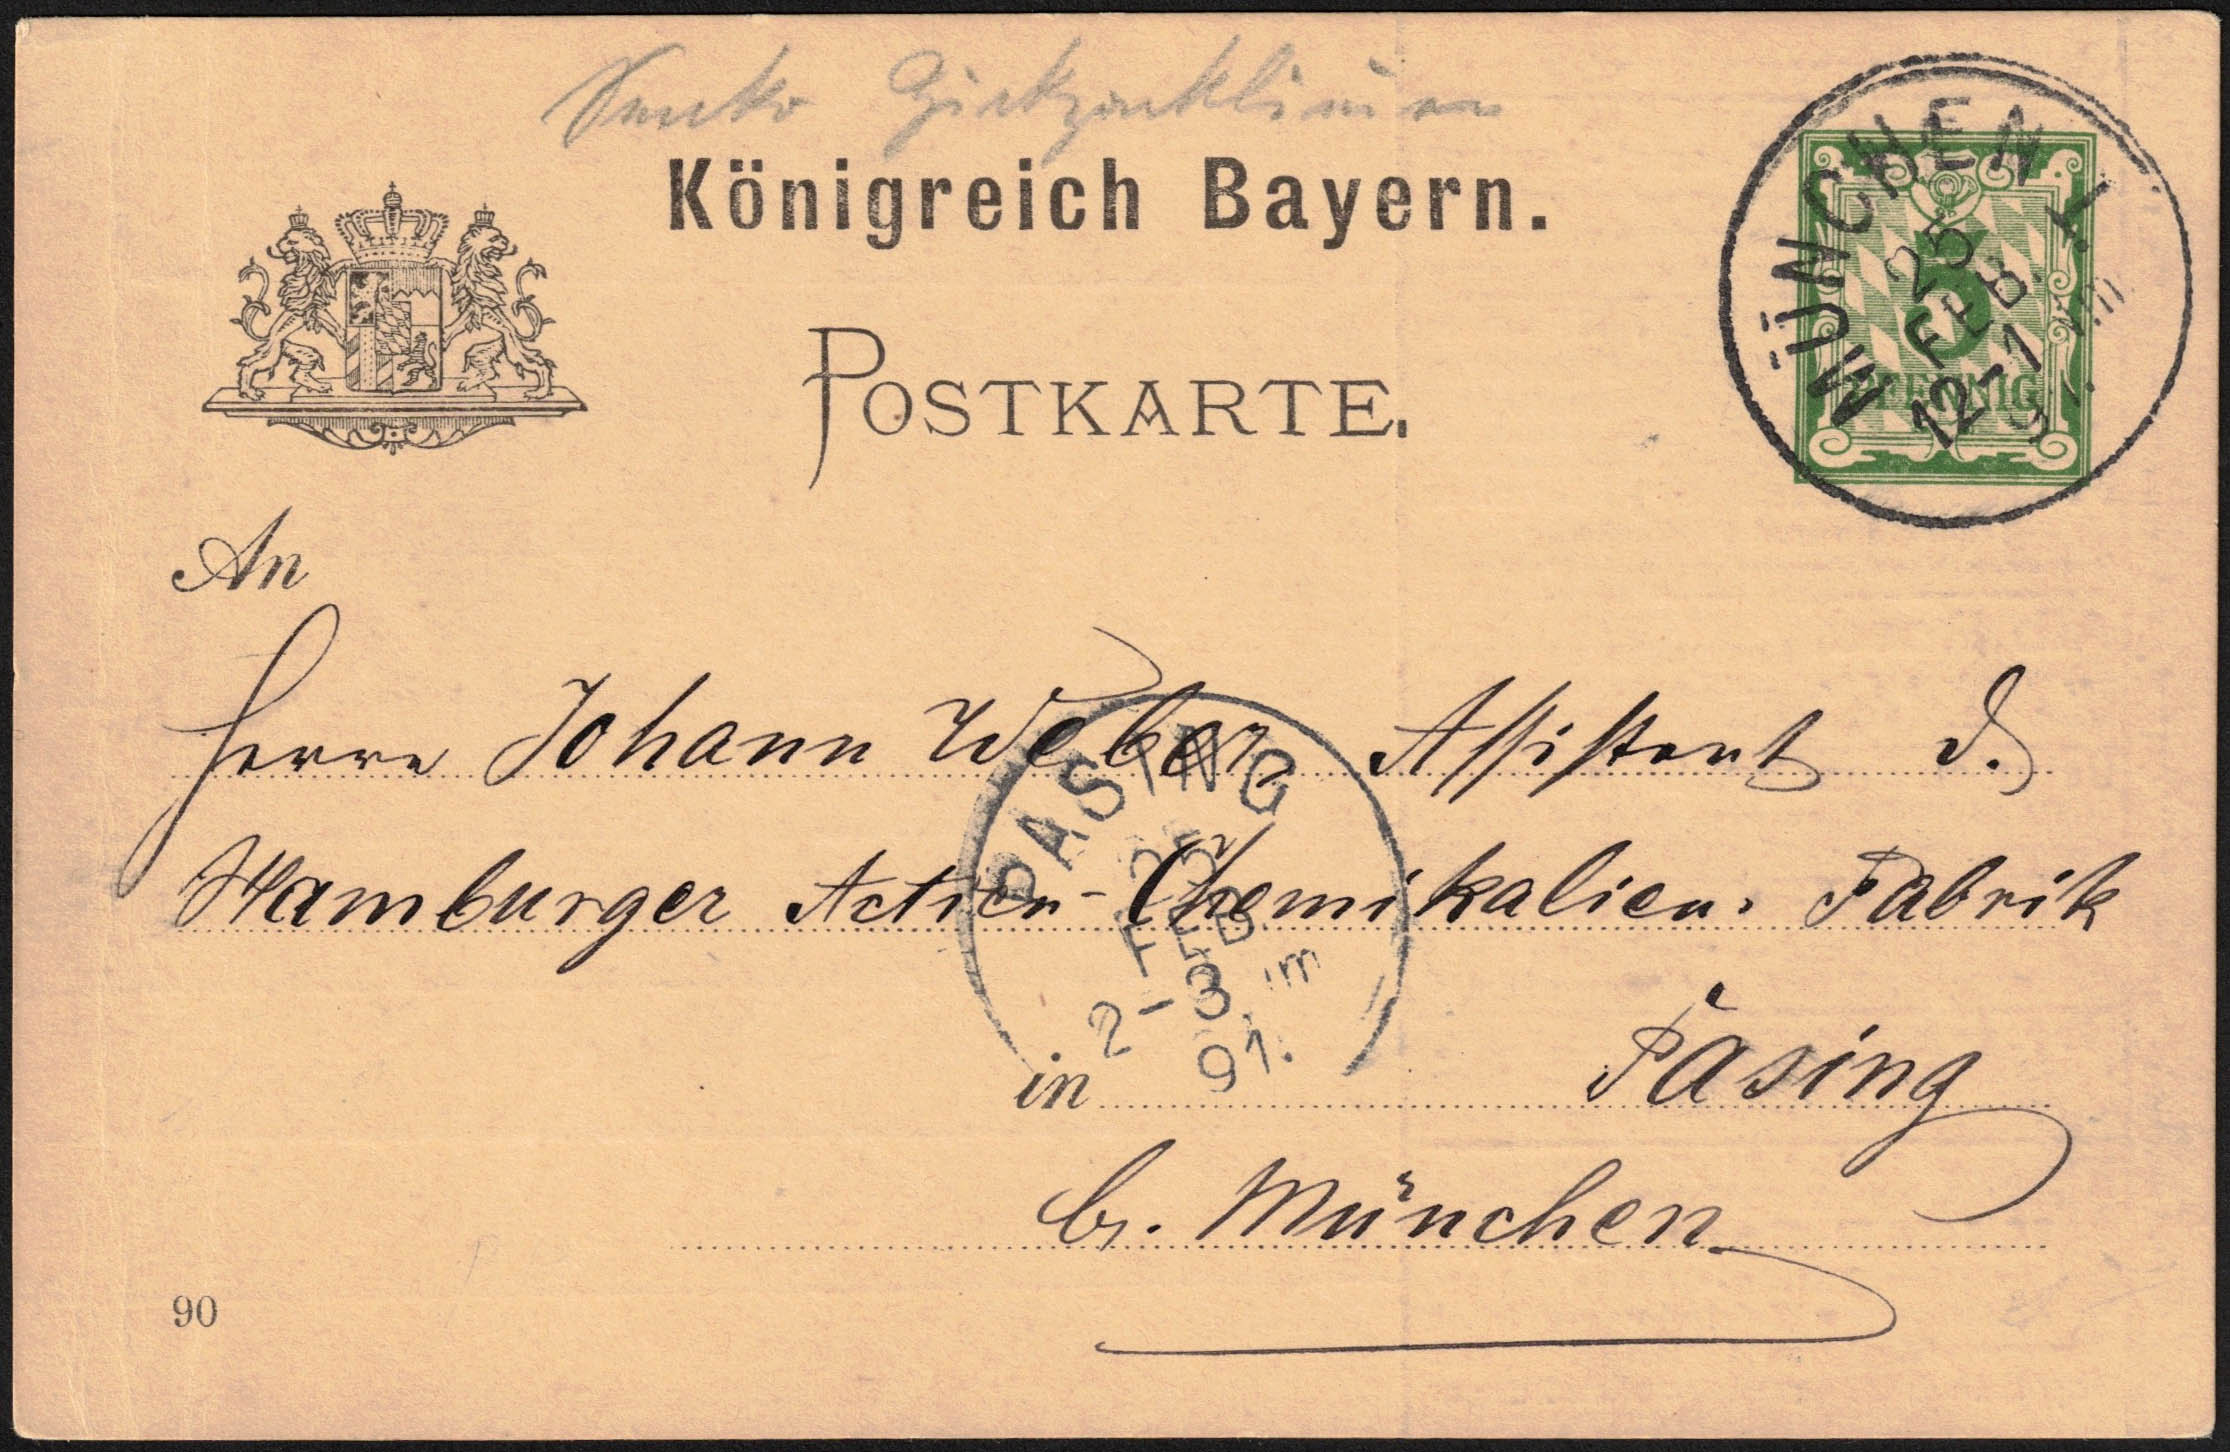 Königreich Bayern.
POSTKARTE.
MÜNCHEN I.
25
FEB.
12-1
91.
5
PFENNIG
An
Herrn Johann Weber, Assistent d.
Hamburger Actien-Chemikalien. Fabrik
PASING
25
FEB
2-3.
91.
in Pasing
b. München
90